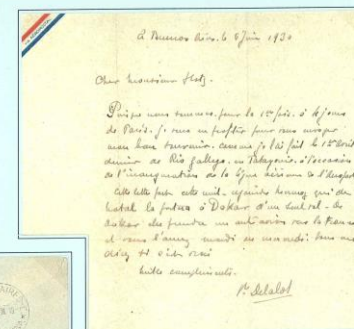 à Buenos Aires, le 8 Juin 1930
Cher Monsieur
Puisque nous sommes, pour la 1ère fois, à 4 jours
de Paris, je veux en profiter pour vous envoyer
mon bon souvenir, comme je l'ai fait le 1er Avril
dernier de Rio Gallegos, en Patagonie, à l'occasion
de l'inauguration de la ligne aérienne de l'Aeroposta
Cette lettre part cette nuit, qui de
Natal la portera à Dakar d'un seul vol. De
Dakar elle prendra un autre avion vers la France
et vous l'aurez mardi ou mercredi. Vous me
direz si c'est vrai
Mille compliments.
Delalot